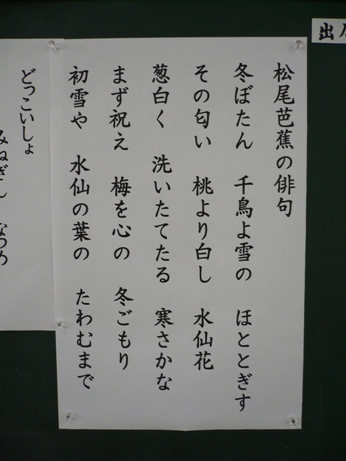 松尾芭蕉の俳句
冬ぼたん 千鳥よ雪の ほととぎす
その匂い 桃より白し 水仙花
葱白く 洗いたてたる 寒さかな
まず祝え 梅を心の 冬ごもり
初雪や 水仙の葉の たわむまで
どっこいしょ